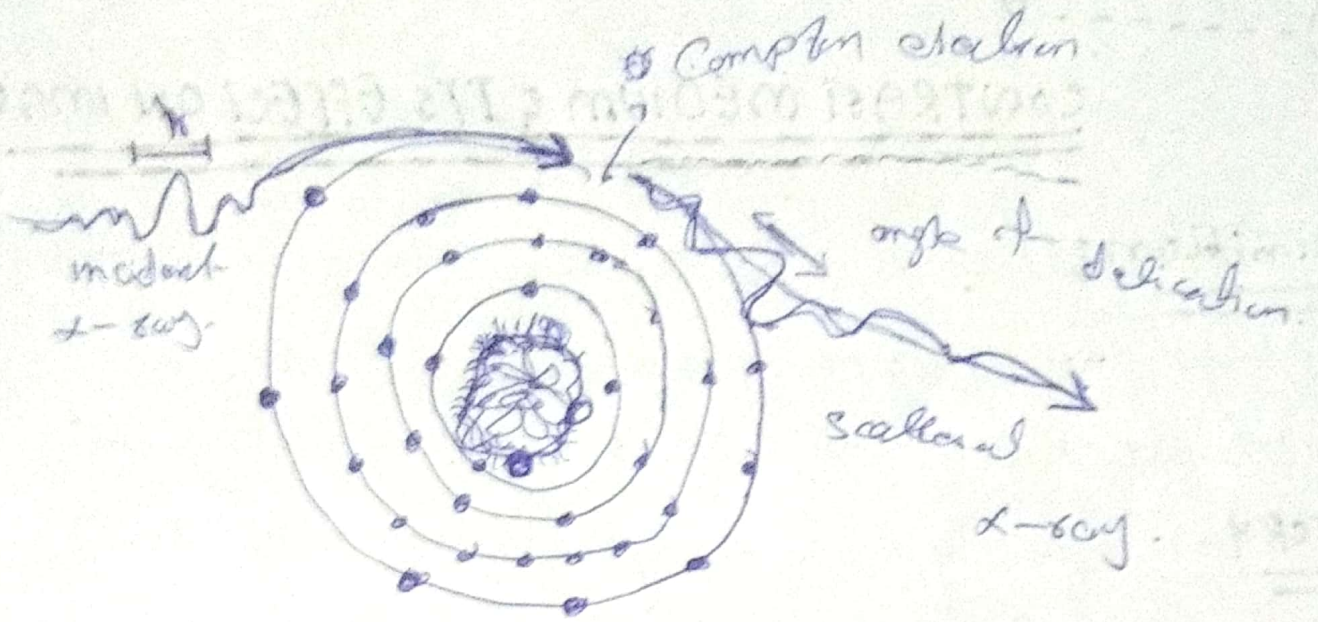 Compton electron
λ
incident
x-ray.
angle of
deflection.
scattered
x-ray.